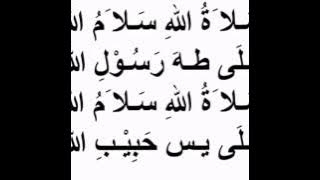 ـلاَةُ اللهِ سَـلاَمُ الله
ـلَى طـهَ رَسُـوْلِ الله
ـلاَةُ اللهِ سَـلاَمُ الله
ـلَى يـس حَبِيْـبِ الله